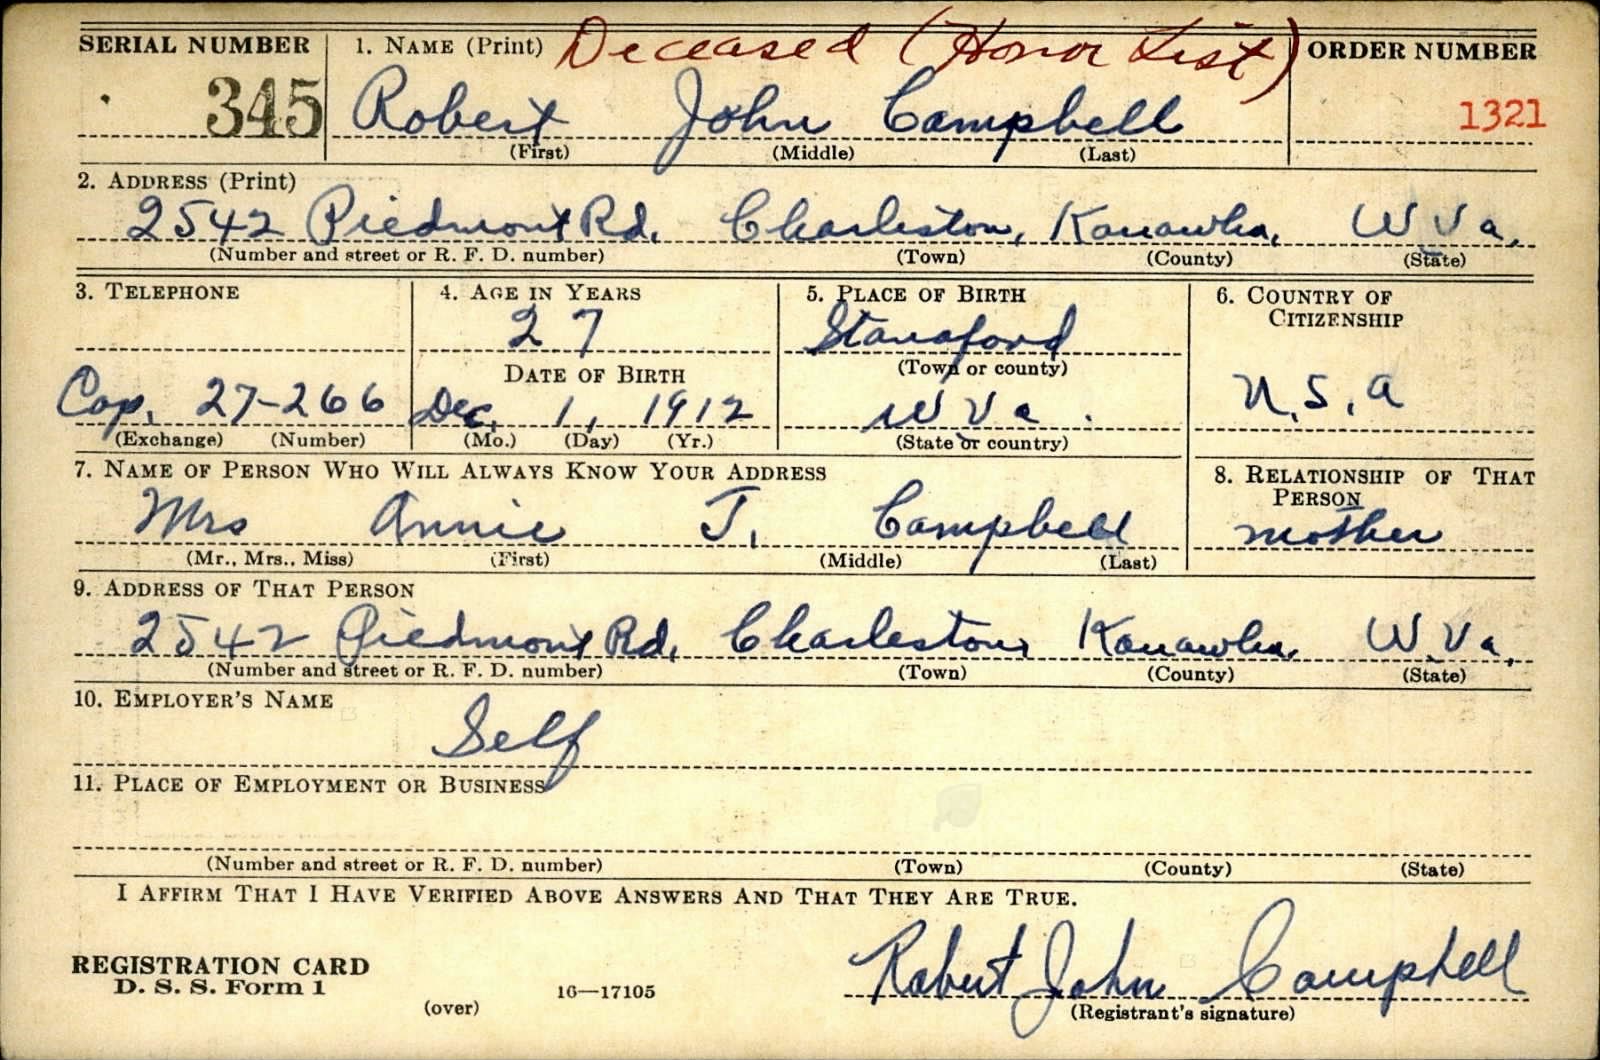 SERIAL NUMBER 1. NAME (Print) Deceased (Honor List) ORDER NUMBER
345 Robert John Campbell 1321
(First) (Middle) (Last)
2. ADDRESS (Print)
2542 Piedmont Rd. Charleston, Kanawha, W Va.
(Number and street or R. F. D. number) (Town) (County) (State)
3. TELEPHONE 4. AGE IN YEARS 5. PLACE OF BIRTH 6. COUNTRY OF CITIZENSHIP
27 Stanaford
DATE OF BIRTH (Town or county)
Cap. 27-266 Dec. 1, 1912 W Va. U.S.A
(Exchange) (Number) (Mo.) (Day) (Yr.) (State or country)
7. NAME OF PERSON WHO WILL ALWAYS KNOW YOUR ADDRESS 8. RELATIONSHIP OF THAT PERSON
Mrs Annie J. Campbell mother
(Mr., Mrs., Miss) (First) (Middle) (Last)
9. ADDRESS OF THAT PERSON
2542 Piedmont Rd. Charleston, Kanawha, W. Va.
(Number and street or R. F. D. number) (Town) (County) (State)
10. EMPLOYER'S NAME
Self
11. PLACE OF EMPLOYMENT OR BUSINESS
(Number and street or R. F. D. number) (Town) (County) (State)
I AFFIRM THAT I HAVE VERIFIED ABOVE ANSWERS AND THAT THEY ARE TRUE.
REGISTRATION CARD Robert John Campbell
D. S. S. Form 1 (over) 16—17105 (Registrant's signature)